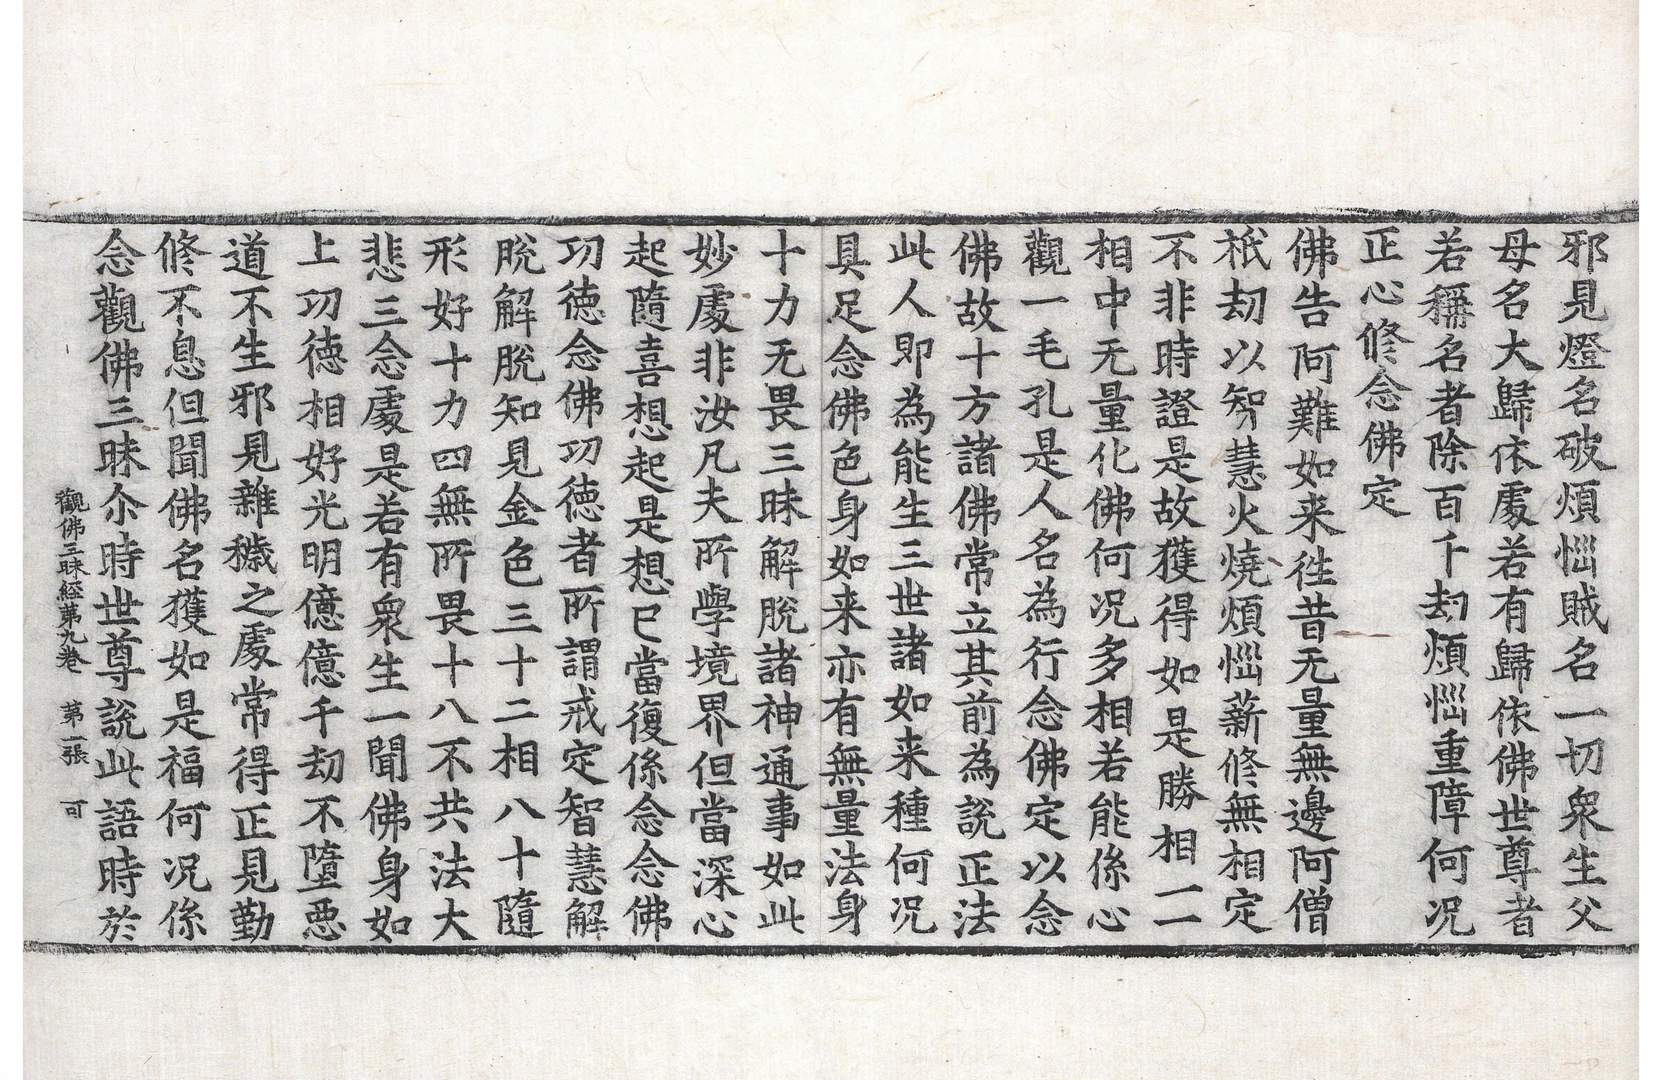 邪見燈名破煩惱賊名一切衆生父
母名大歸依處若有歸依佛世尊者
若稱名者除百千劫煩惱重障何况
正心修念佛定
佛告阿難如来徃昔无量無邊阿僧
祇劫以智慧火燒煩惱薪修無相定
不非時證是故獲得如是勝相一一
相中无量化佛何况多相若能係心
觀一毛孔是人名為行念佛定以念
佛故十方諸佛常立其前為說正法
此人即為能生三世諸如来種何况
具足念佛色身如来亦有無量法身
十力无畏三昧解脫諸神通事如此
妙處非汝凡夫所學境界但當深心
起隨喜想起是想已當復係念念佛
功德念佛功德者所謂戒定智慧解
脫解脫知見金色三十二相八十隨
形好十力四無所畏十八不共法大
悲三念處是若有衆生一聞佛身如
上功德相好光明億億千劫不墮惡
道不生邪見雜穢之處常得正見勤
修不息但聞佛名獲如是福何况係
念觀佛三昧尒時世尊說此語時於
觀佛三昧經第九卷 第二張 可